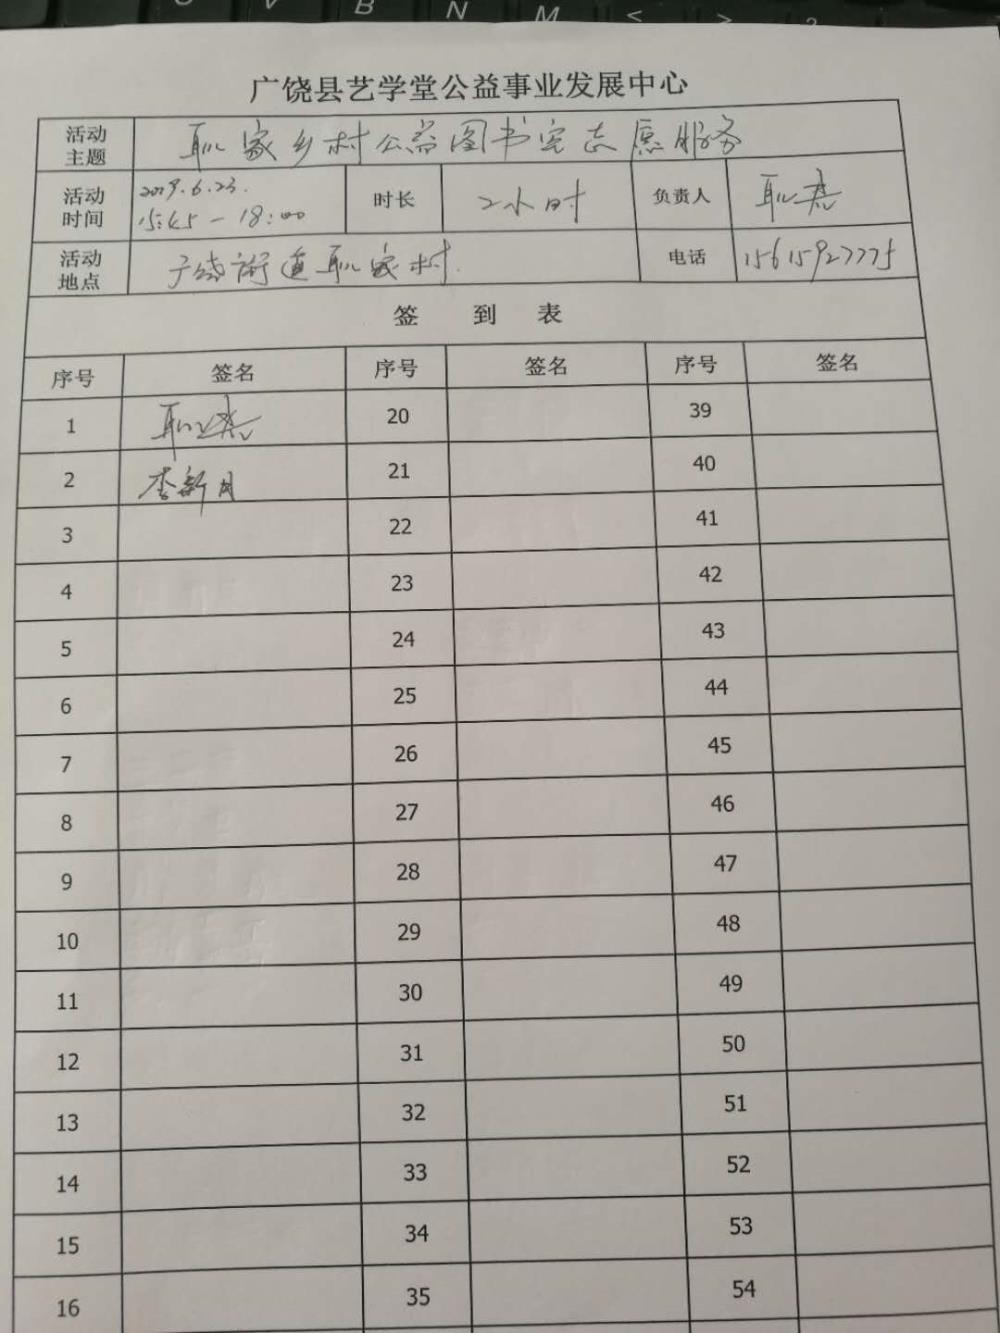 V B N M < > ?
广饶县艺学堂公益事业发展中心
活动主题 耿家乡村公益图书室志愿服务
活动时间 2019.6.23. 15:45-18:00 时长 2小时 负责人
活动地点 广饶街道耿家村. 电话 15615927775
签 到 表
序号 签名 序号 签名 序号 签名
1 20 39
2 李新月 21 40
3 22 41
4 23 42
5 24 43
6 25 44
7 26 45
8 27 46
9 28 47
10 29 48
11 30 49
12 31 50
13 32 51
14 33 52
15 34 53
16 35 54